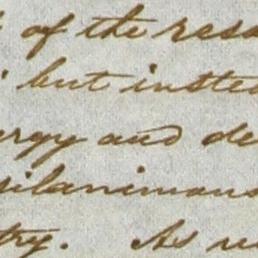 of the reso
but instea
ergy and de
silanimous
try. As